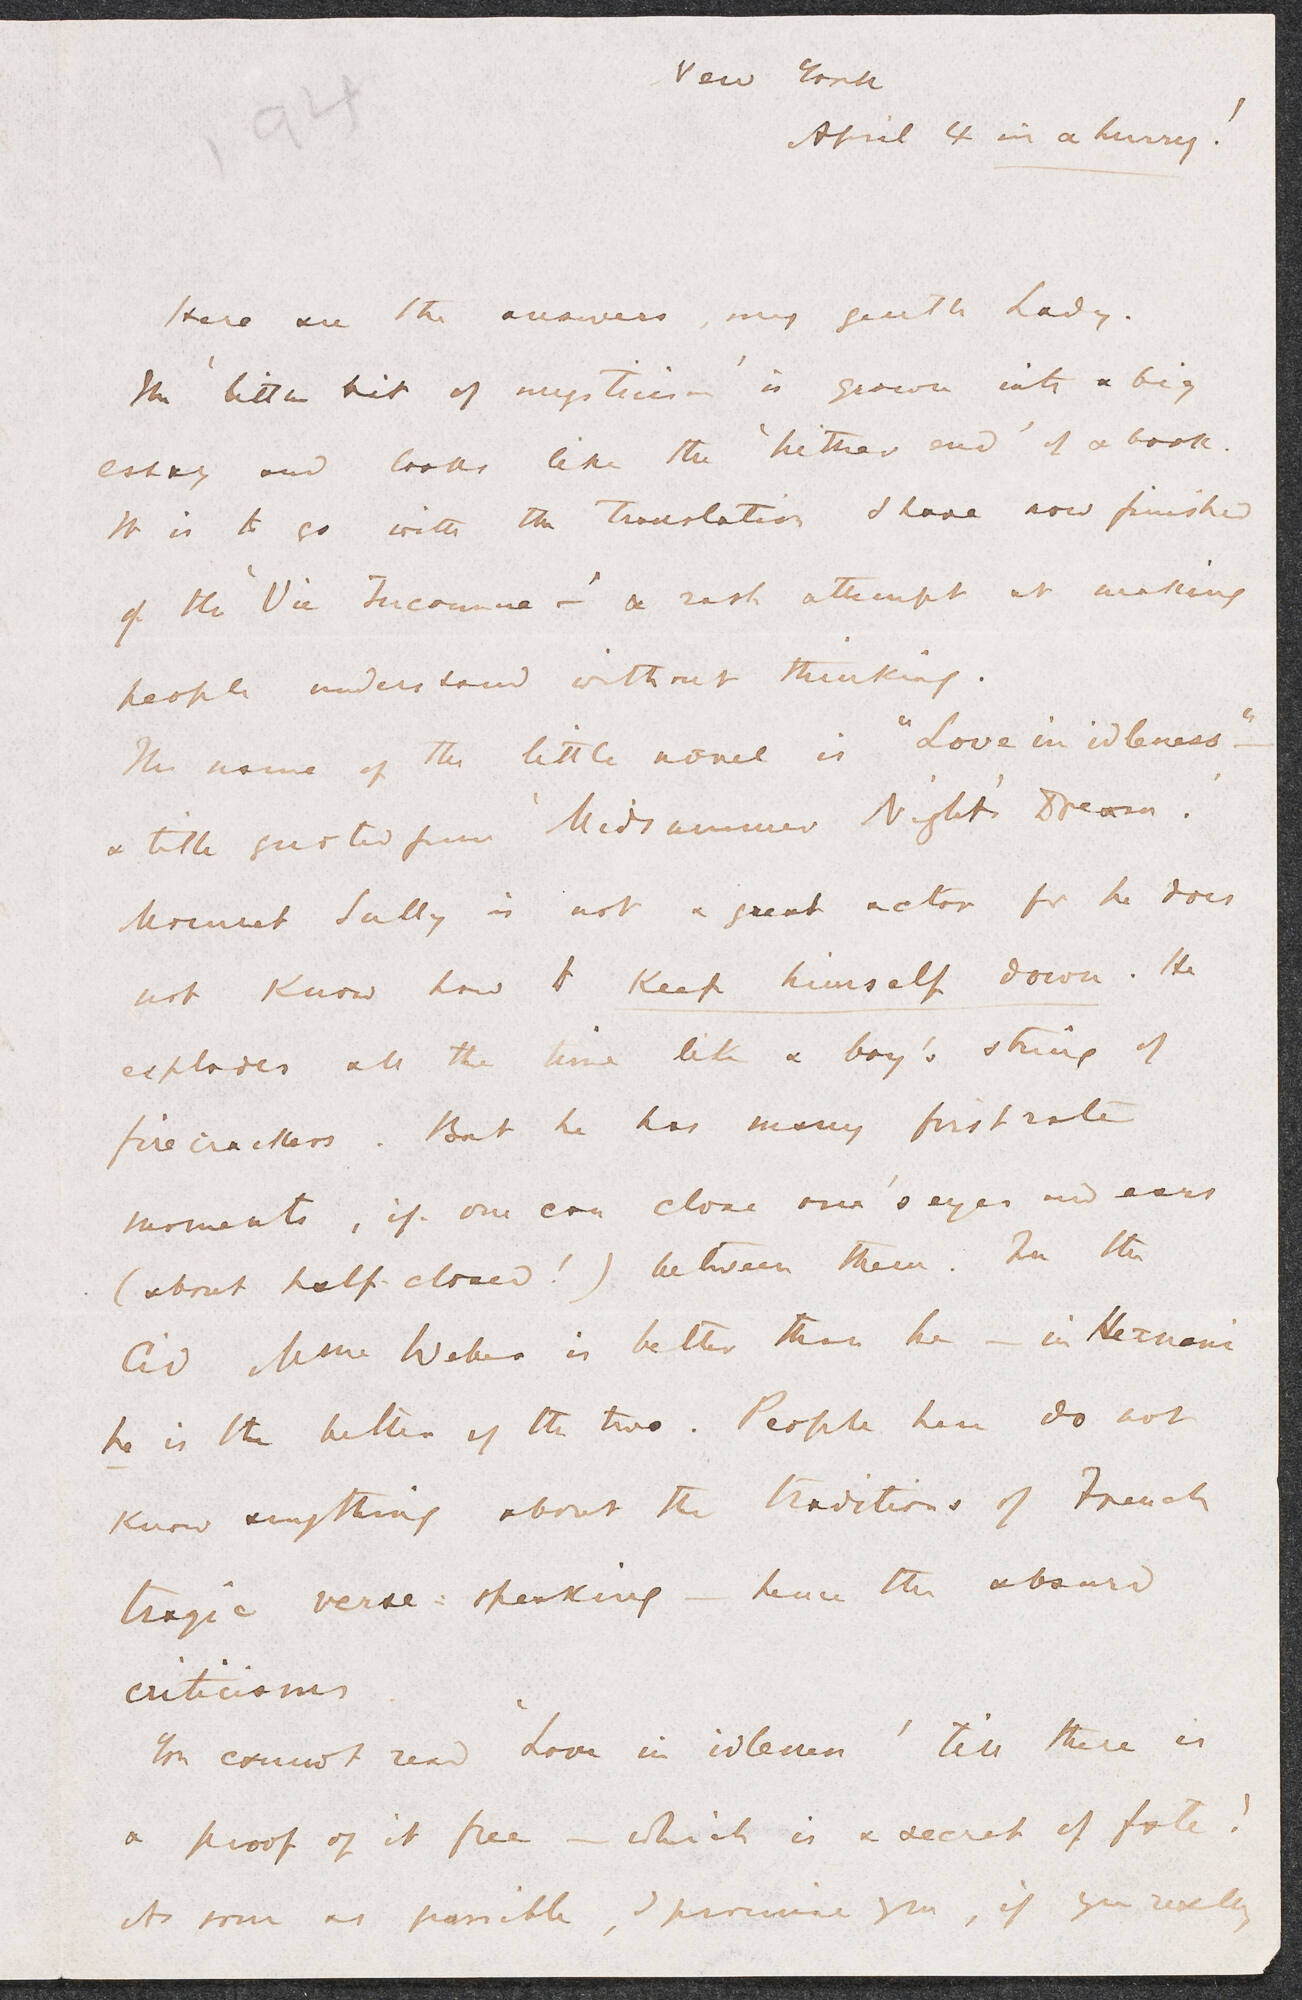 , 94
New York
April 4 in a hurry!
Here are the answers, my gentle Lady.
The 'little bit of mysticism' is grown into a big
essay and looks like the 'hither end' of a book.
It is to go with the translation I have now finished
of the 'Vie Inconnue -' a rash attempt at making
people understand without thinking.
The name of the little novel is "Love in idleness" -
a title quoted from 'Midsummer Night's Dream.'
Mounet Sully is not a great actor for he does
not know how to keep himself down. He
explodes all the time like a boy's string of
firecrackers. But he has many first rate
moments, if one can close one's eyes and ears
(about half-closed!) between them. In the
Cid Mme Weber is better than he - in Hernani
he is the better of the two. People here do not
know anything about the traditions of French
tragic verse-speaking - hence the absurd
criticisms.
You cannot read 'Love in idleness' till there is
a proof of it free - which is a secret of fate!
As soon as possible, I promise you, if you really